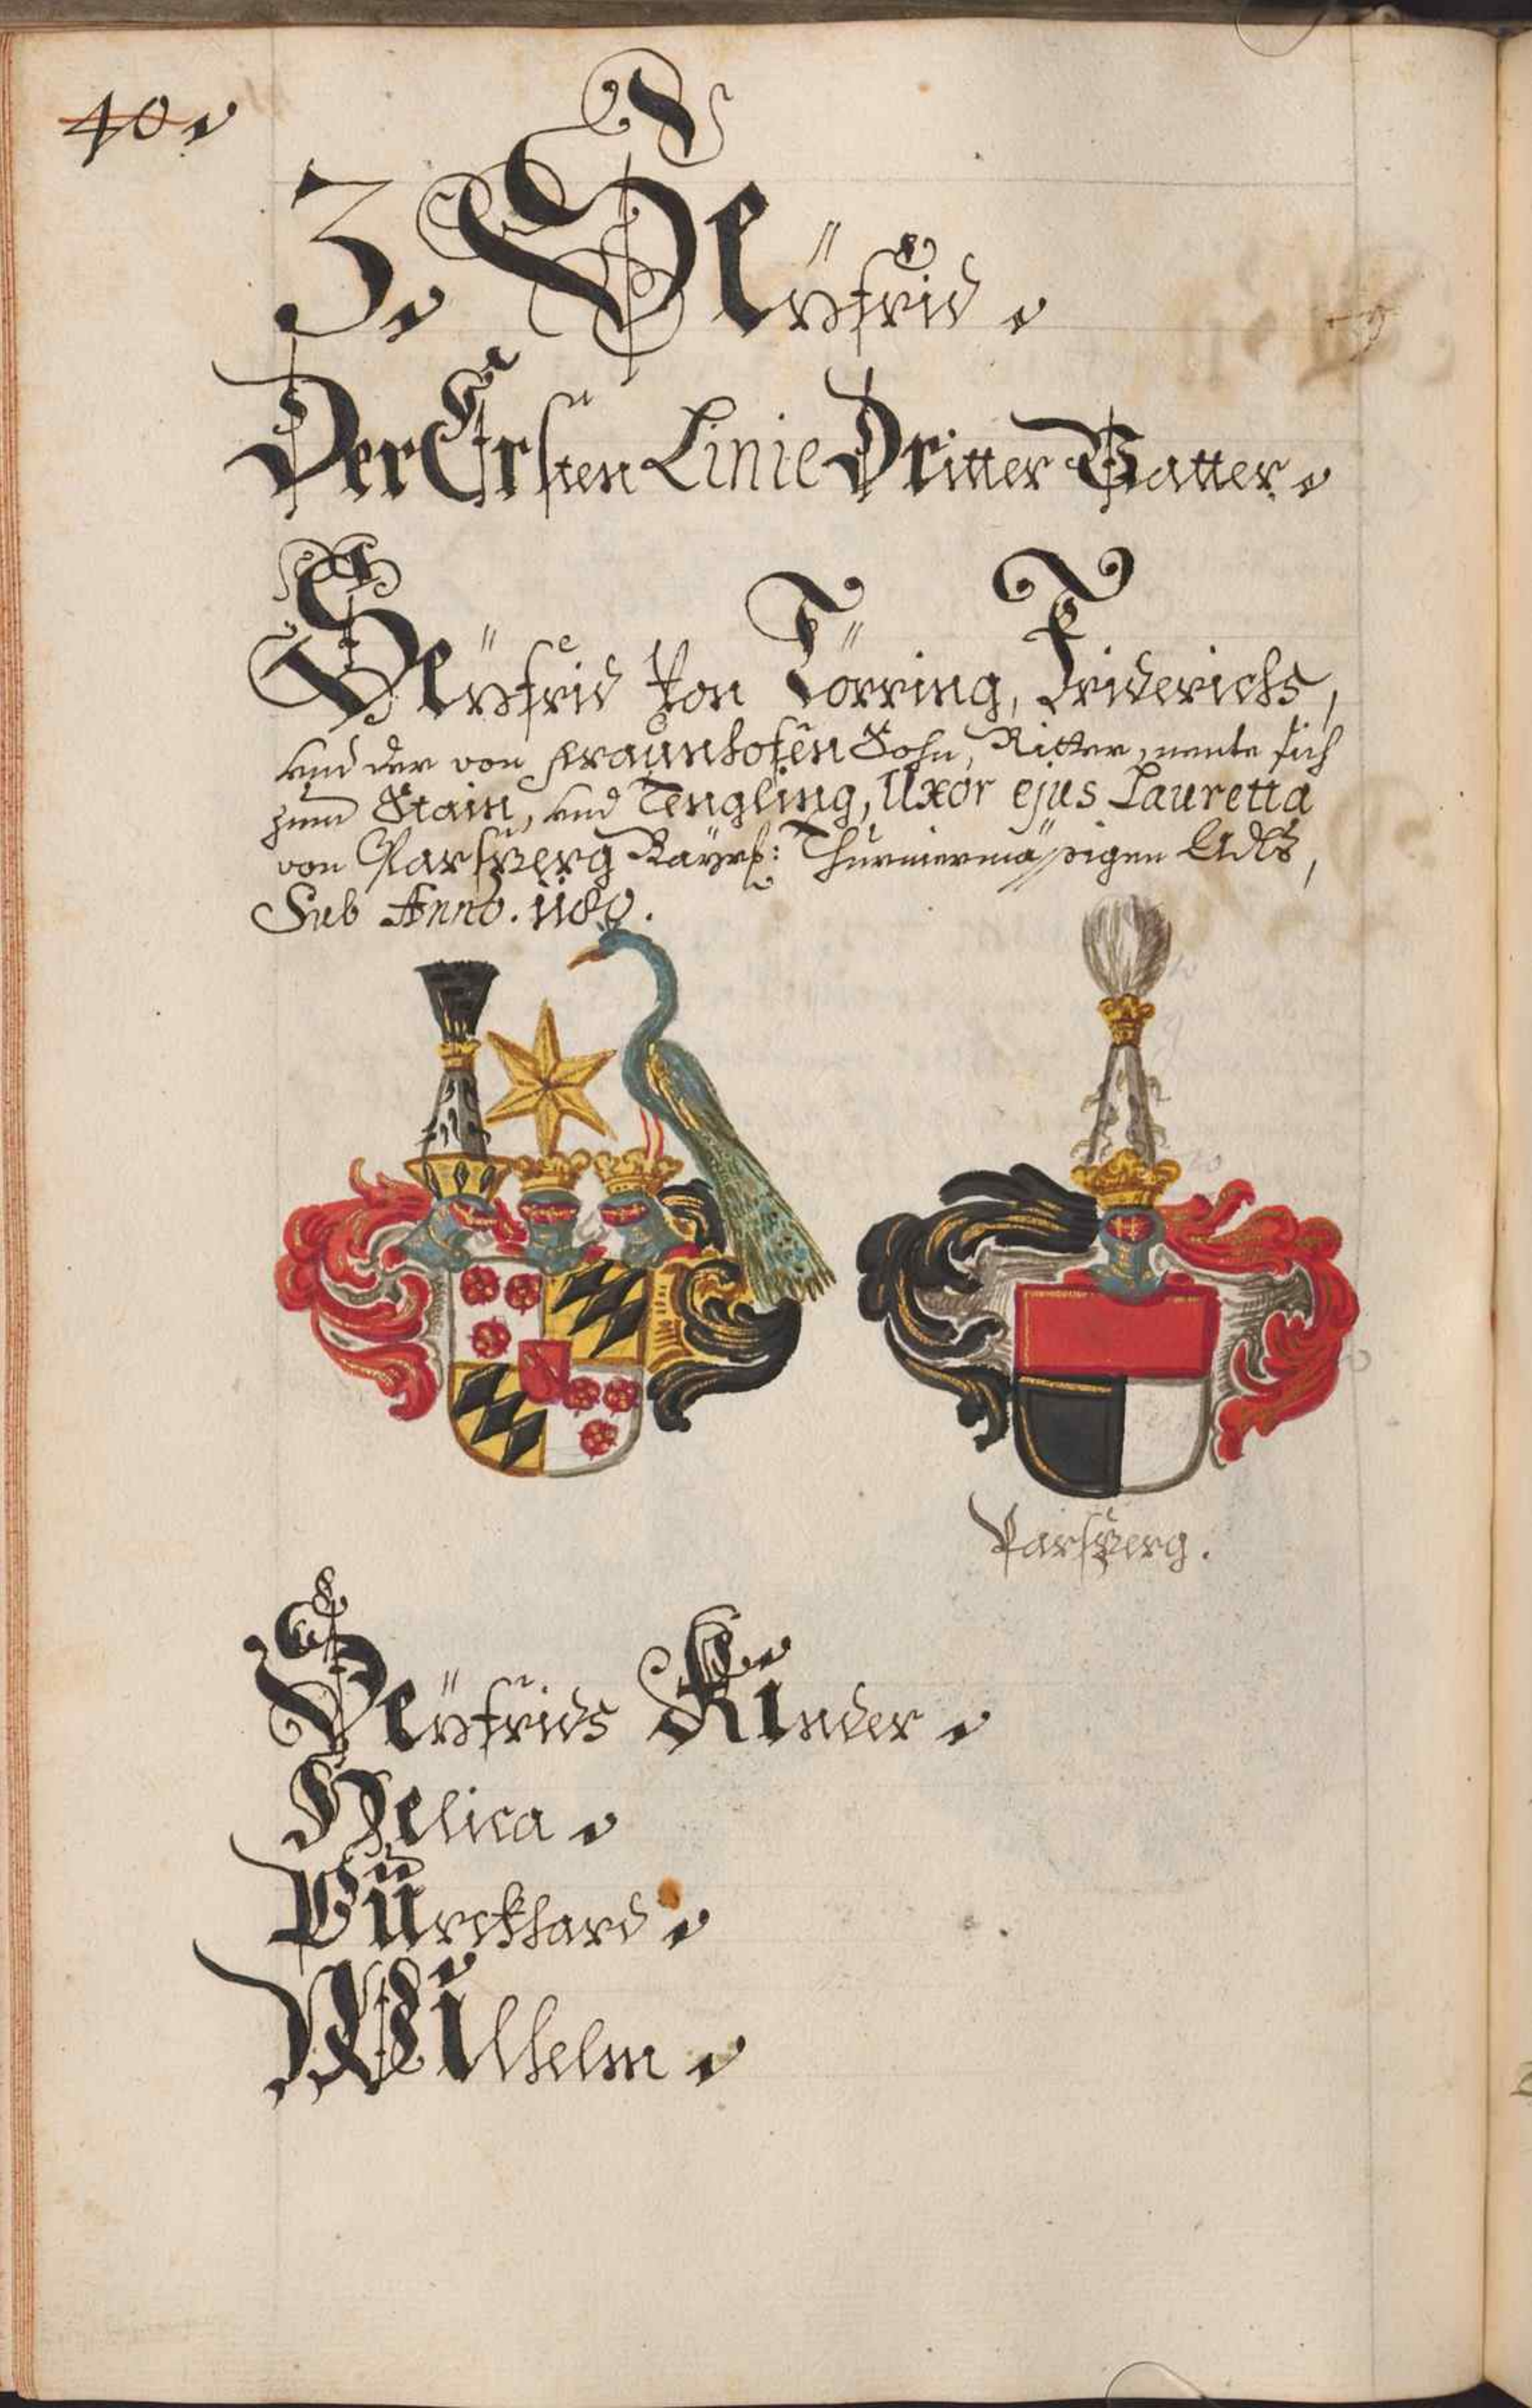 40.
3. Seÿfrid.
Der Ersten Linie Dritter Vatter.
Seÿfrid von Törring, Friderichs,
und der von Fraunhofen Sohn, Ritter, nente sich
zum Stain, und Tengling, Uxor ejus Lauretta
von Parsperg Bayrs: Thurniermäßigen Adls,
Sub Anno. 1180.
Parsperg.
Seÿfrids Kinder.
Helica.
Burckhard.
Wilhelm.